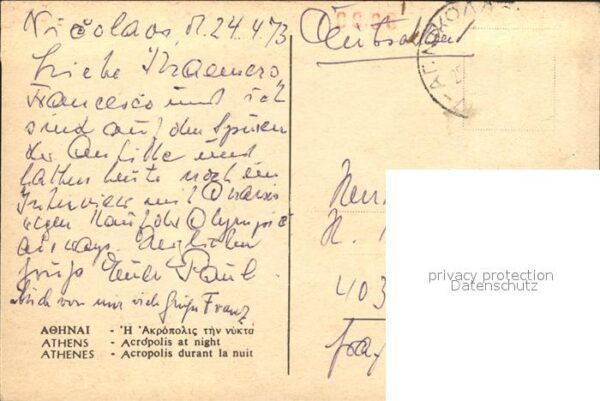 Nicolaos, d. 24.4.73
Liebe Kraemers
Francesco und ich
sind auf den Spuren
der Antike und
hatten heute noch ein
Interview mit Onassis
wegen Kauf der Olympic
airways. Herzliche
Grüße Euer Paul
Auch von mir viele Grüße Franz
ΑΘΗΝΑΙ - Ἡ Ἀκρόπολις τὴν νύκτα
ATHENS - Acropolis at night
ATHENES - Acropolis durant la nuit
Deutschland
ΑΓ. ΝΙΚΟΛΑ
403
privacy protection
Datenschutz